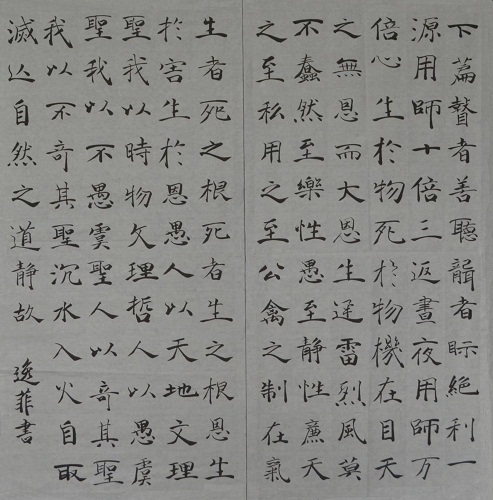 下篇瞽者善聽聾者眎絕利一
源用師十倍三返晝夜用師万
倍心生於物死於物機在目天
之無恩而大恩生迅雷烈風莫
不蠢然至樂性愚至靜性廉天
之至私用之至公禽之制在氣
生者死之根死者生之根恩生
於害生於恩愚人以天地文理
聖我以時物文理哲人以愚虞
聖我以不愚虞聖人以奇其聖
我以不奇其聖沉水入火自取
滅亾自然之道靜故
逸菲書